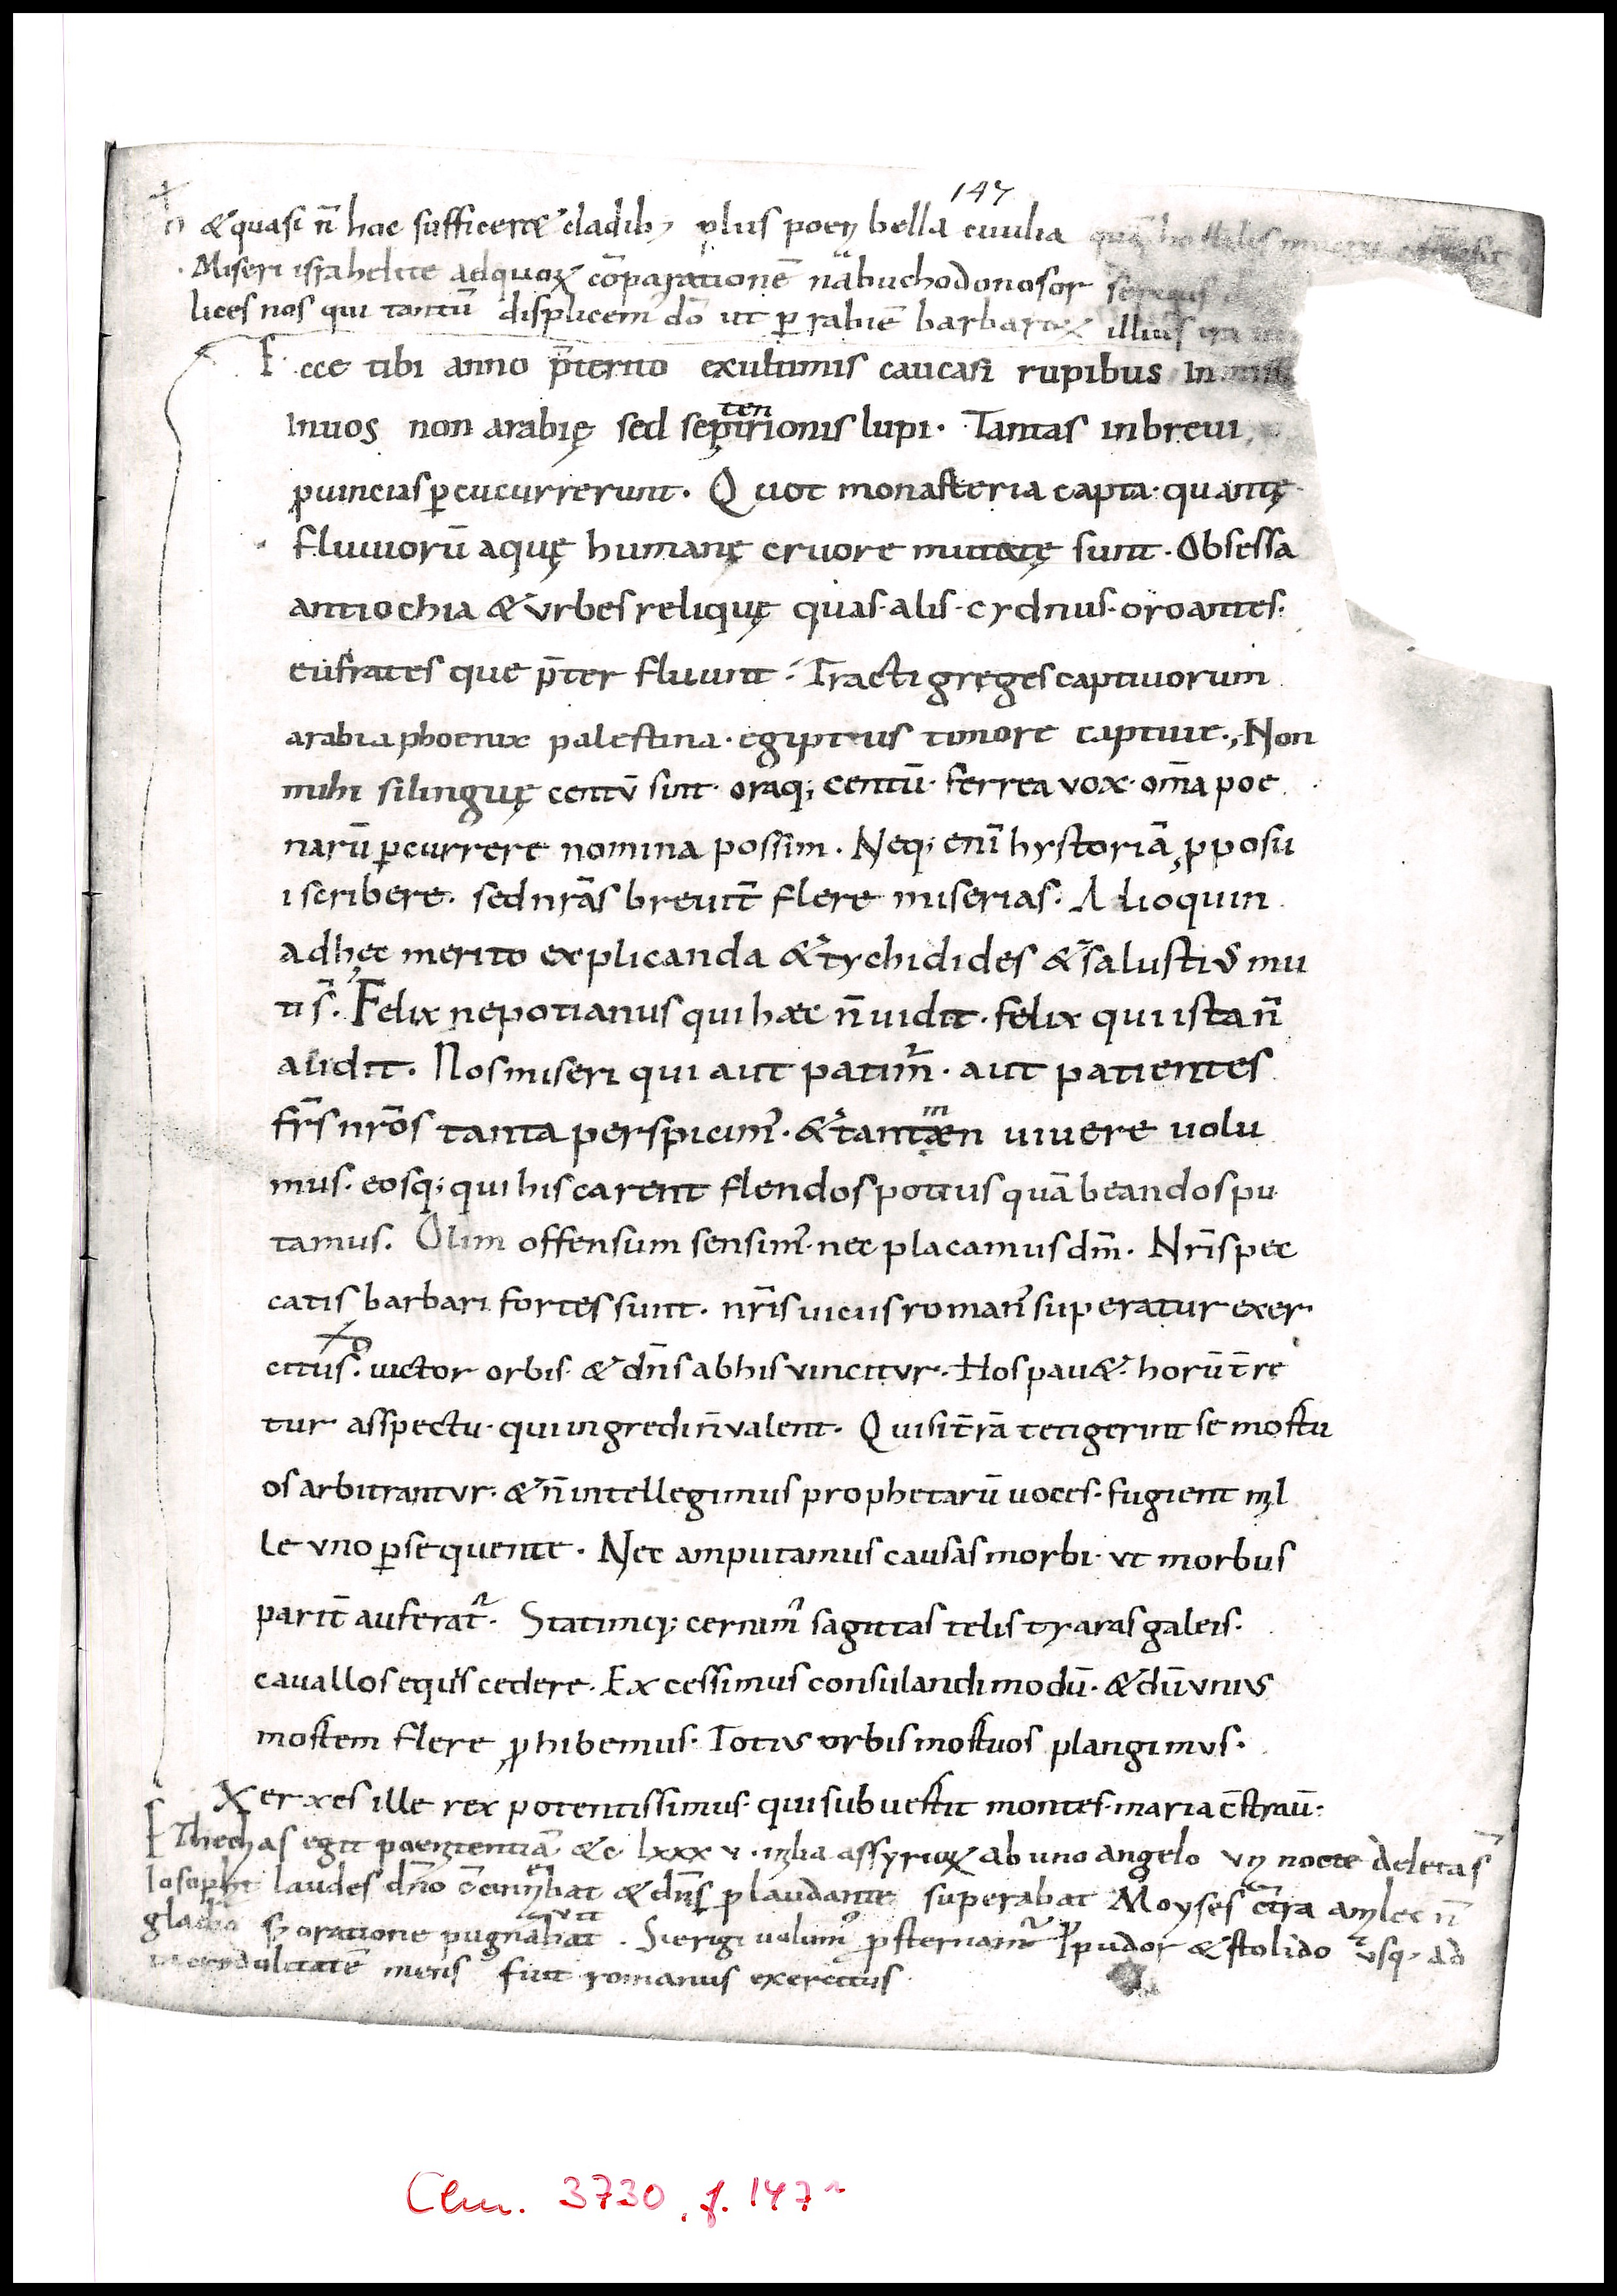 147
& quasi n̄ hoc sufficer& cladib; plus poen bella ciuilia quā hostilis mucro
Miseri israhelite adquoꝝ cōparationē nabuchodonosor seruus
lices nos qui tantū displicem̄ dō ut ꝑ rabiē barbaroꝝ illius ira
Ecce tibi anno p̄terito exultimis caucasi rupibus In
Inuos non arabię sed seꝑtirionis lupi. Tantas inbreui
ten
ꝓuincias ꝑcucurrerunt. Quot monasteria capta. quantę
fluuiorū aquę humanę cruore mutatę sunt. Obsessa
antiochia & vrbes reliquę quas. alis. cydnus. oroantes.
eufrates que p̄ter fluunt. Tracti greges captiuorum
arabia phoenix palestina. egiptus timore captiue. Non
mihi silinguę centū sint oraq; centū. ferrea vox. om̄a poe
narū ꝑcurrere nomina possim. Neq; enī hystoriā ꝓposu
i scribere. sed nr̄as breuit̄ flere miserias. Alioquin
adhęc merito explicanda & tychidides & salustius mu
ti s̄. Felix nepotianus qui haec n̄ uidit. felix qui ista n̄
audit. Nos miseri qui aut patim̄. aut patientes
fr̄s nr̄os tanta perspicim̓. & tantæn uiuere uolu
m
mus. eosq; qui his carent flendos potius quā beandos pu
tamus. Olim offensum sensim̓. nec placamus dm̄. Nr̄is pec
catis barbari fortes sunt. nr̄is uicus roman̓ superatur exer
citus. uictor orbis. & dn̄s ab his vincitvr. Hos pau&. horū t̄re
tur asspectu. qui ingredi n̄ valent. Qui si t̄rā tetigerint se mortu
os arbitrantvr. & n̄ intellegimus prophetarū uoces. fugient mil
le vno ꝑsequente. Nec amputamus causas morbi. vt morbus
parit̄ auferat̄. Statimq; cernim̓ sagittas telis tyaras galeis.
cauallos equis cedere. Excessimus consulandi modū. & dū vnius
mortem flere ꝓhibemus. Totius orbis mortuos plangimvs.
Xerxes ille rex potentissimus. qui subuertit montes. maria c̄strau̅.
Thechas egit poenitentiā & c lxxx v. milia assyrioꝝ ab uno angelo vn nocte deleta s̄
Iosaphat laudes dn̄o c̄cinebat & dn̄s ꝓlaudante superabat Moyses c̄tra amlec n̄
gladio s; oratione pugnabat. Si erigi uolum̓ ꝓsternam̄ ꝓ pudor & stolido vsq; ad
incredulitatē mens fuit romanus exercitus
Clm. 3730, f. 147r